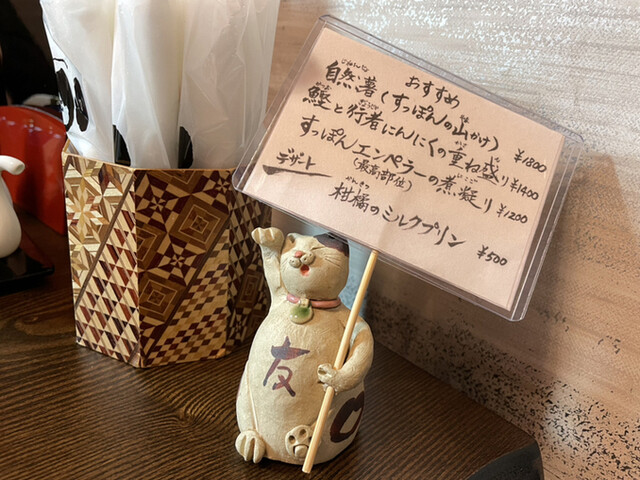 おすすめ
自然薯(すっぽんの山かけ) ¥1800
鰹と行者にんにくの重ね盛り ¥1400
すっぽんエンペラーの煮凝り ¥1200
(最高部位)
デザート
柑橘のミルクプリン ¥500
友